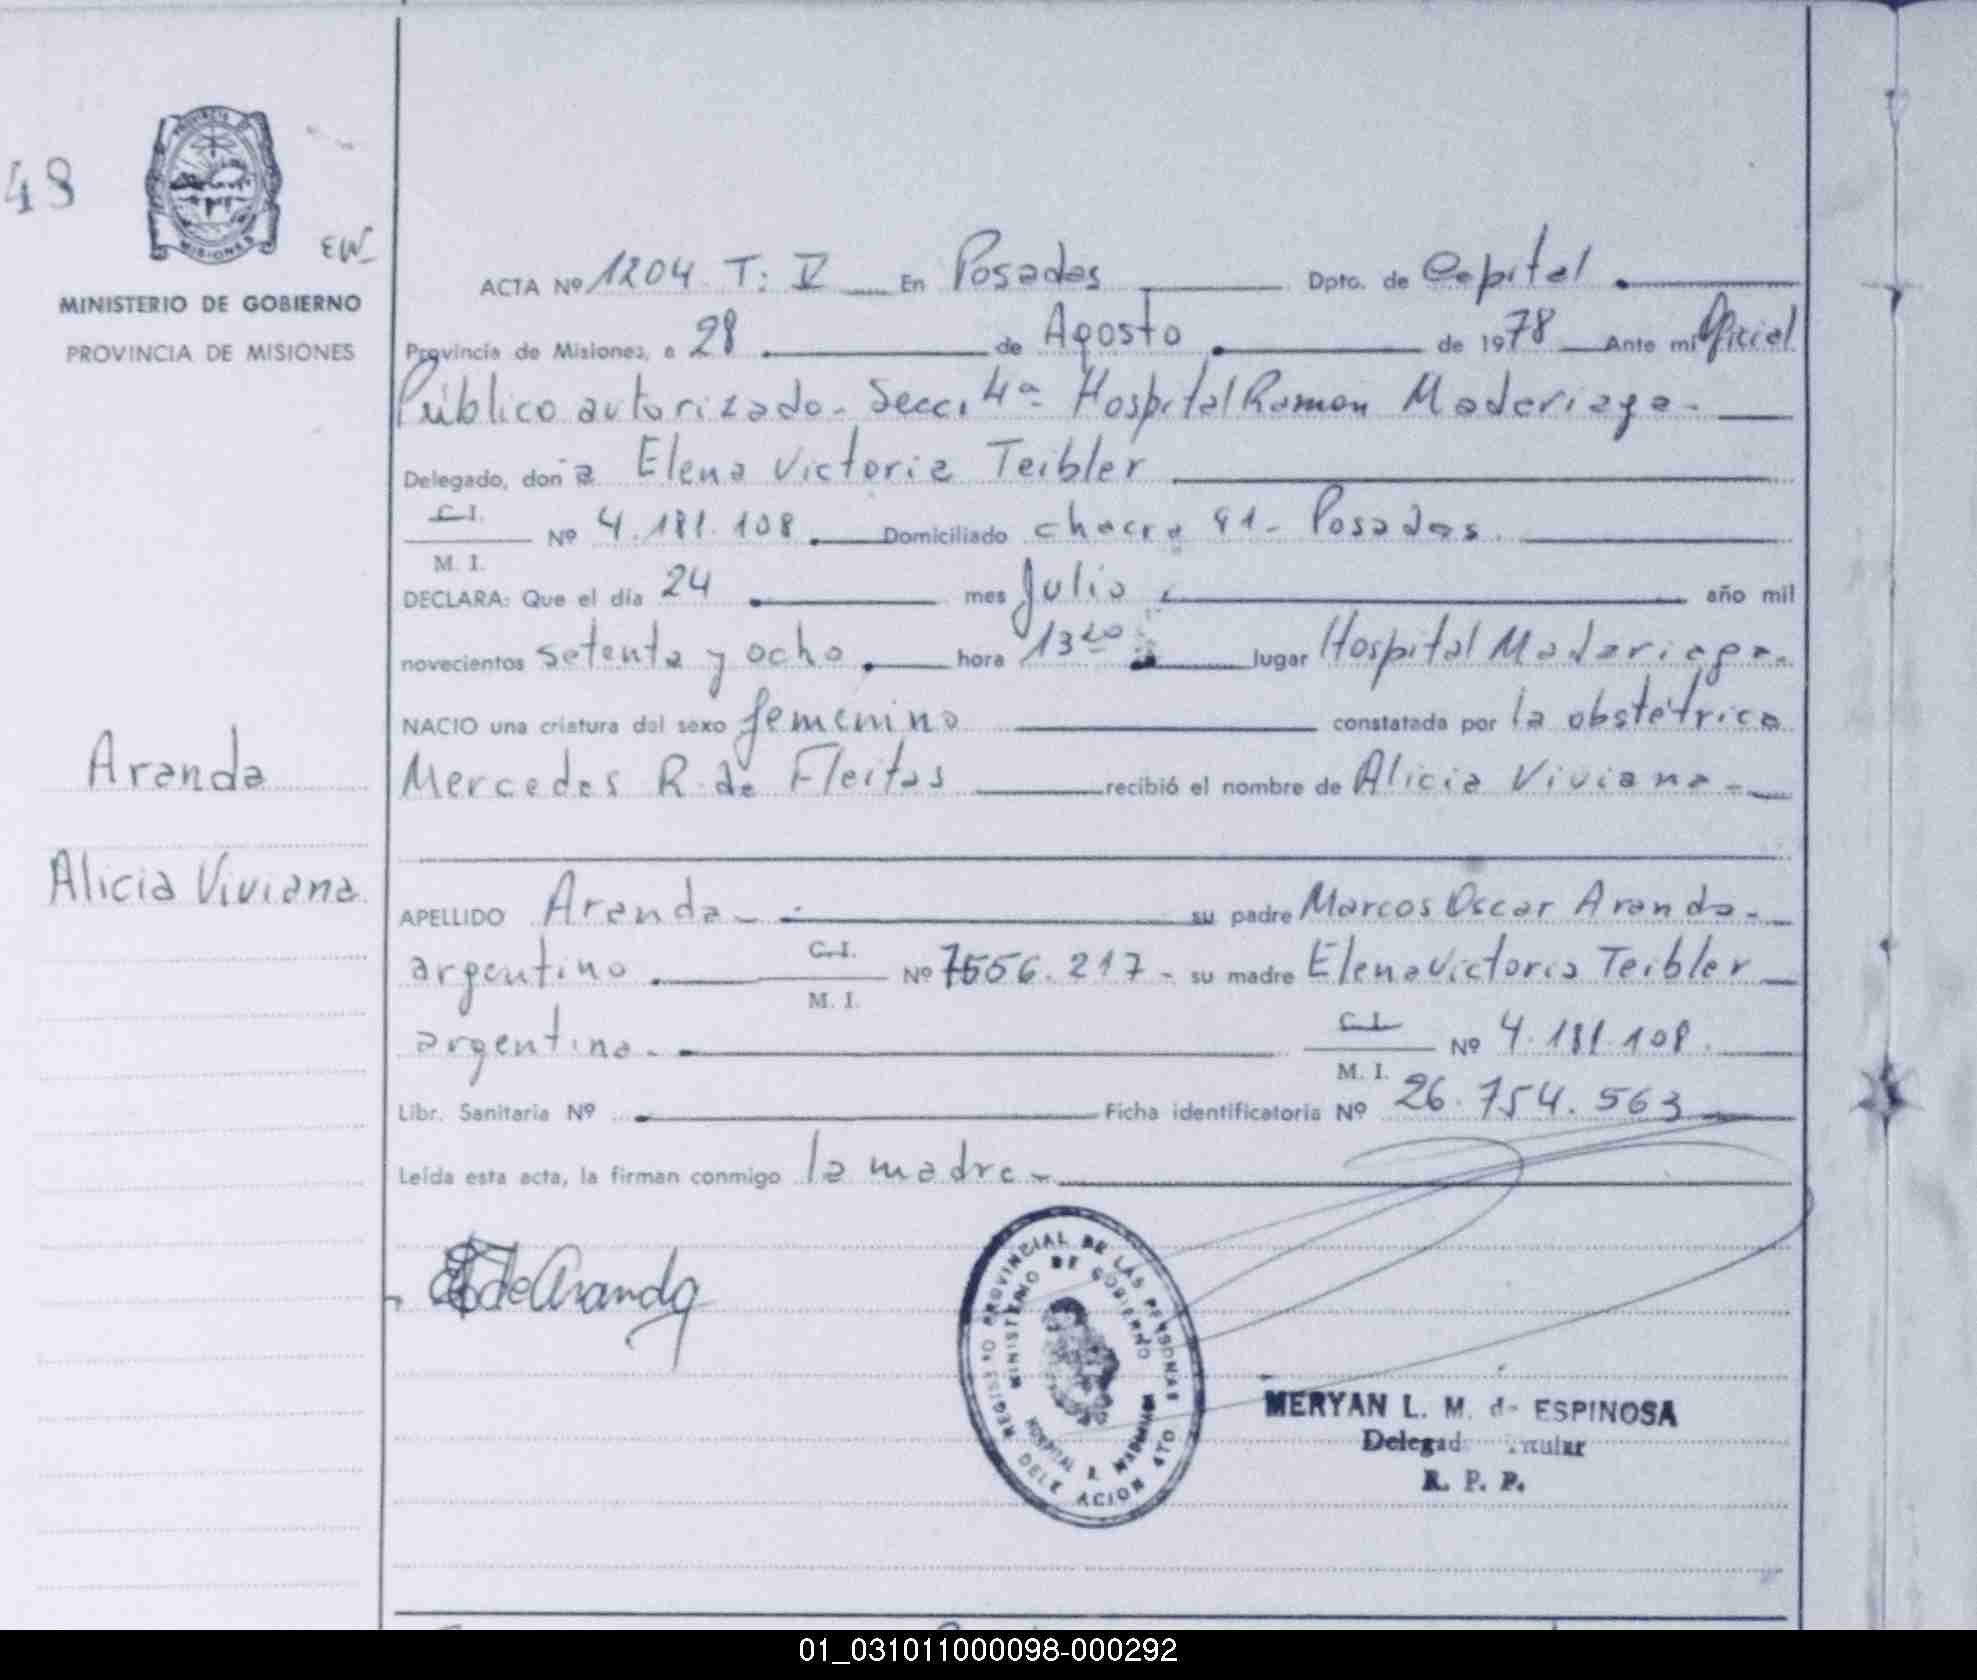 48
PROVINCIA DE
MISIONES
EW
MINISTERIO DE GOBIERNO
PROVINCIA DE MISIONES
ACTA Nº 1204 T: V En Posadas Dpto. de Capital
Provincia de Misiones, a 28 de Agosto de 1978 Ante mi Oficial
Público autorizado. Secc. 4ª Hospital Ramon Madariaga.
Delegado, don a Elena Victoria Teibler
C.I.
Nº 4.181.108 Domiciliado chacra 81 - Posadas.
M. I.
DECLARA: Que el día 24 mes Julio año mil
novecientos setenta y ocho hora 13 20 lugar Hospital Madariaga.
NACIO una criatura del sexo femenino constatada por la obstétrica
Mercedes R. de Fleitas recibió el nombre de Alicia Viviana -
Aranda
Alicia Viviana
APELLIDO Aranda - su padre Marcos Oscar Aranda -
C.I.
argentino Nº 7556.217 - su madre Elena Victoria Teibler
M. I.
C.I.
argentina. Nº 4.181.108.
M. I.
Libr. Sanitaria Nº Ficha identificatoria Nº 26.754.563
Leída esta acta, la firman conmigo la madre -
de Aranda
REGISTRO PROVINCIAL DE LAS PERSONAS
MINISTERIO DE GOBIERNO
HOSPITAL R. MADARIAGA
DELEGACION 4TO
MERYAN L. M. de ESPINOSA
R. P. P.
01_031011000098-000292